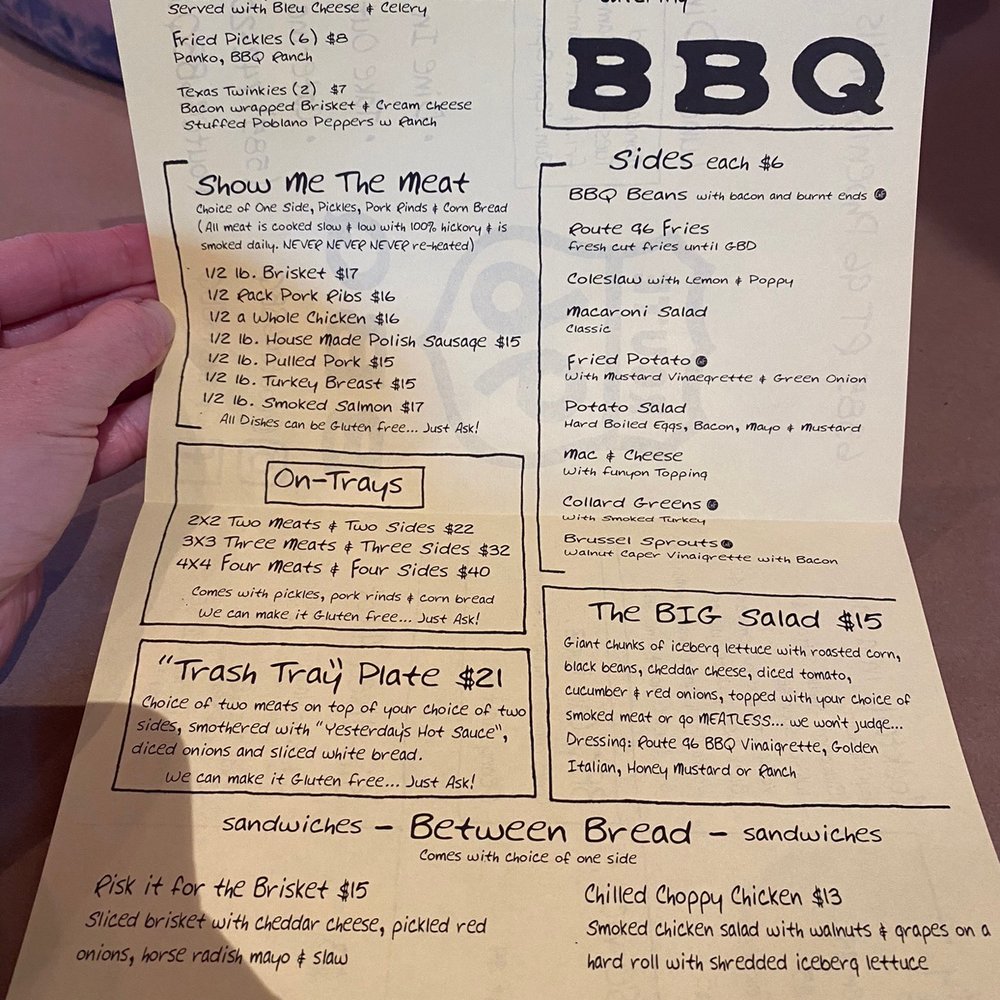 Served with Bleu Cheese & Celery
Fried Pickles (6) $8
Panko, BBQ Ranch
Texas Twinkies (2) $7
Bacon wrapped Brisket & Cream cheese
Stuffed Poblano Peppers w Ranch
Show Me The Meat
Choice of One Side, Pickles, Pork Rinds & Corn Bread
(All meat is cooked slow & low with 100% hickory & is
smoked daily. NEVER NEVER NEVER re-heated)
1/2 lb. Brisket $17
1/2 Rack Pork Ribs $16
1/2 a Whole Chicken $16
1/2 lb. House Made Polish Sausage $15
1/2 lb. Pulled Pork $15
1/2 lb. Turkey Breast $15
1/2 lb. Smoked Salmon $17
All Dishes can be Gluten free... Just Ask!
On-Trays
2X2 Two Meats & Two Sides $22
3X3 Three Meats & Three Sides $32
4X4 Four Meats & Four Sides $40
Comes with pickles, pork rinds & corn bread
We can make it Gluten free... Just Ask!
"Trash Tray" Plate $21
Choice of two meats on top of your choice of two
sides, smothered with "Yesterday's Hot Sauce",
diced onions and sliced white bread.
We can make it Gluten free... Just Ask!
Catering
BBQ
Sides each $6
BBQ Beans with bacon and burnt ends GF
Route 96 Fries
fresh cut fries until GBD
Coleslaw with Lemon & Poppy
Macaroni Salad
Classic
Fried Potato GF
With Mustard Vinaegrette & Green Onion
Potato Salad
Hard Boiled Eggs, Bacon, Mayo & Mustard
Mac & Cheese
With Funyon Topping
Collard Greens GF
With Smoked Turkey
Brussel Sprouts GF
Walnut Caper Vinaigrette with Bacon
The BIG Salad $15
Giant chunks of iceberg lettuce with roasted corn,
black beans, cheddar cheese, diced tomato,
cucumber & red onions, topped with your choice of
smoked meat or go MEATLESS... we won't judge...
Dressing: Route 96 BBQ Vinaigrette, Golden
Italian, Honey Mustard or Ranch
sandwiches - Between Bread - sandwiches
Comes with choice of one side
Risk it for the Brisket $15
Sliced brisket with cheddar cheese, pickled red
onions, horse radish mayo & slaw
Chilled Choppy Chicken $13
Smoked chicken salad with walnuts & grapes on a
hard roll with shredded iceberg lettuce